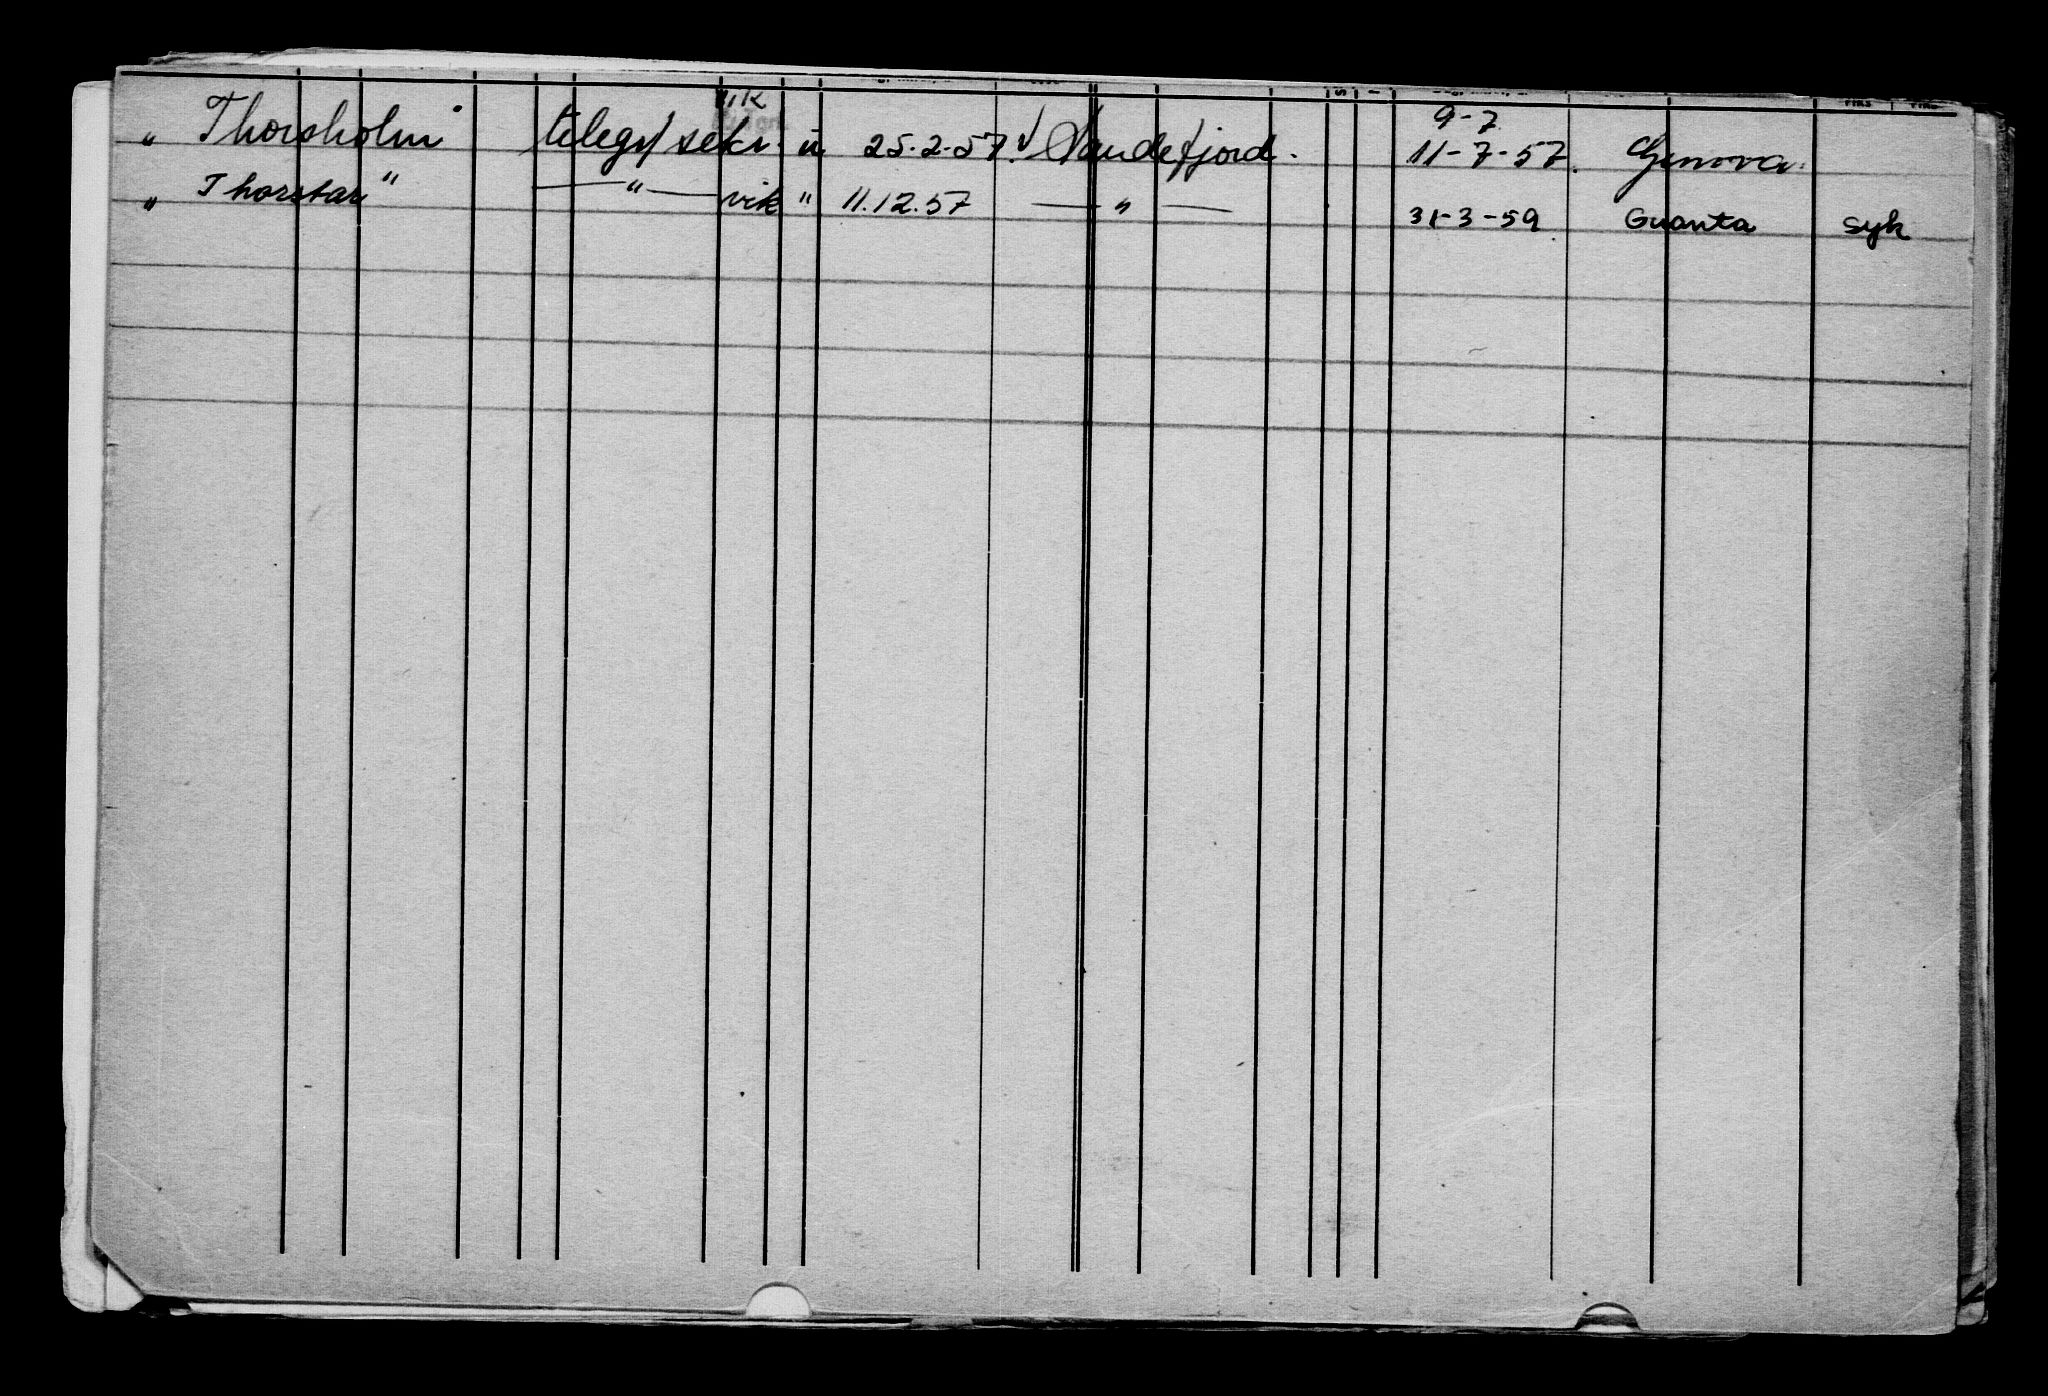 vik
9-7
„ Thorsholm" telegr/sekr. u 25.2.57. Sandefjord. 11-7-57. Genova.
„ Thorstar" —"— vik " 11.12.57 —„— 31-3-59 Guanta syk